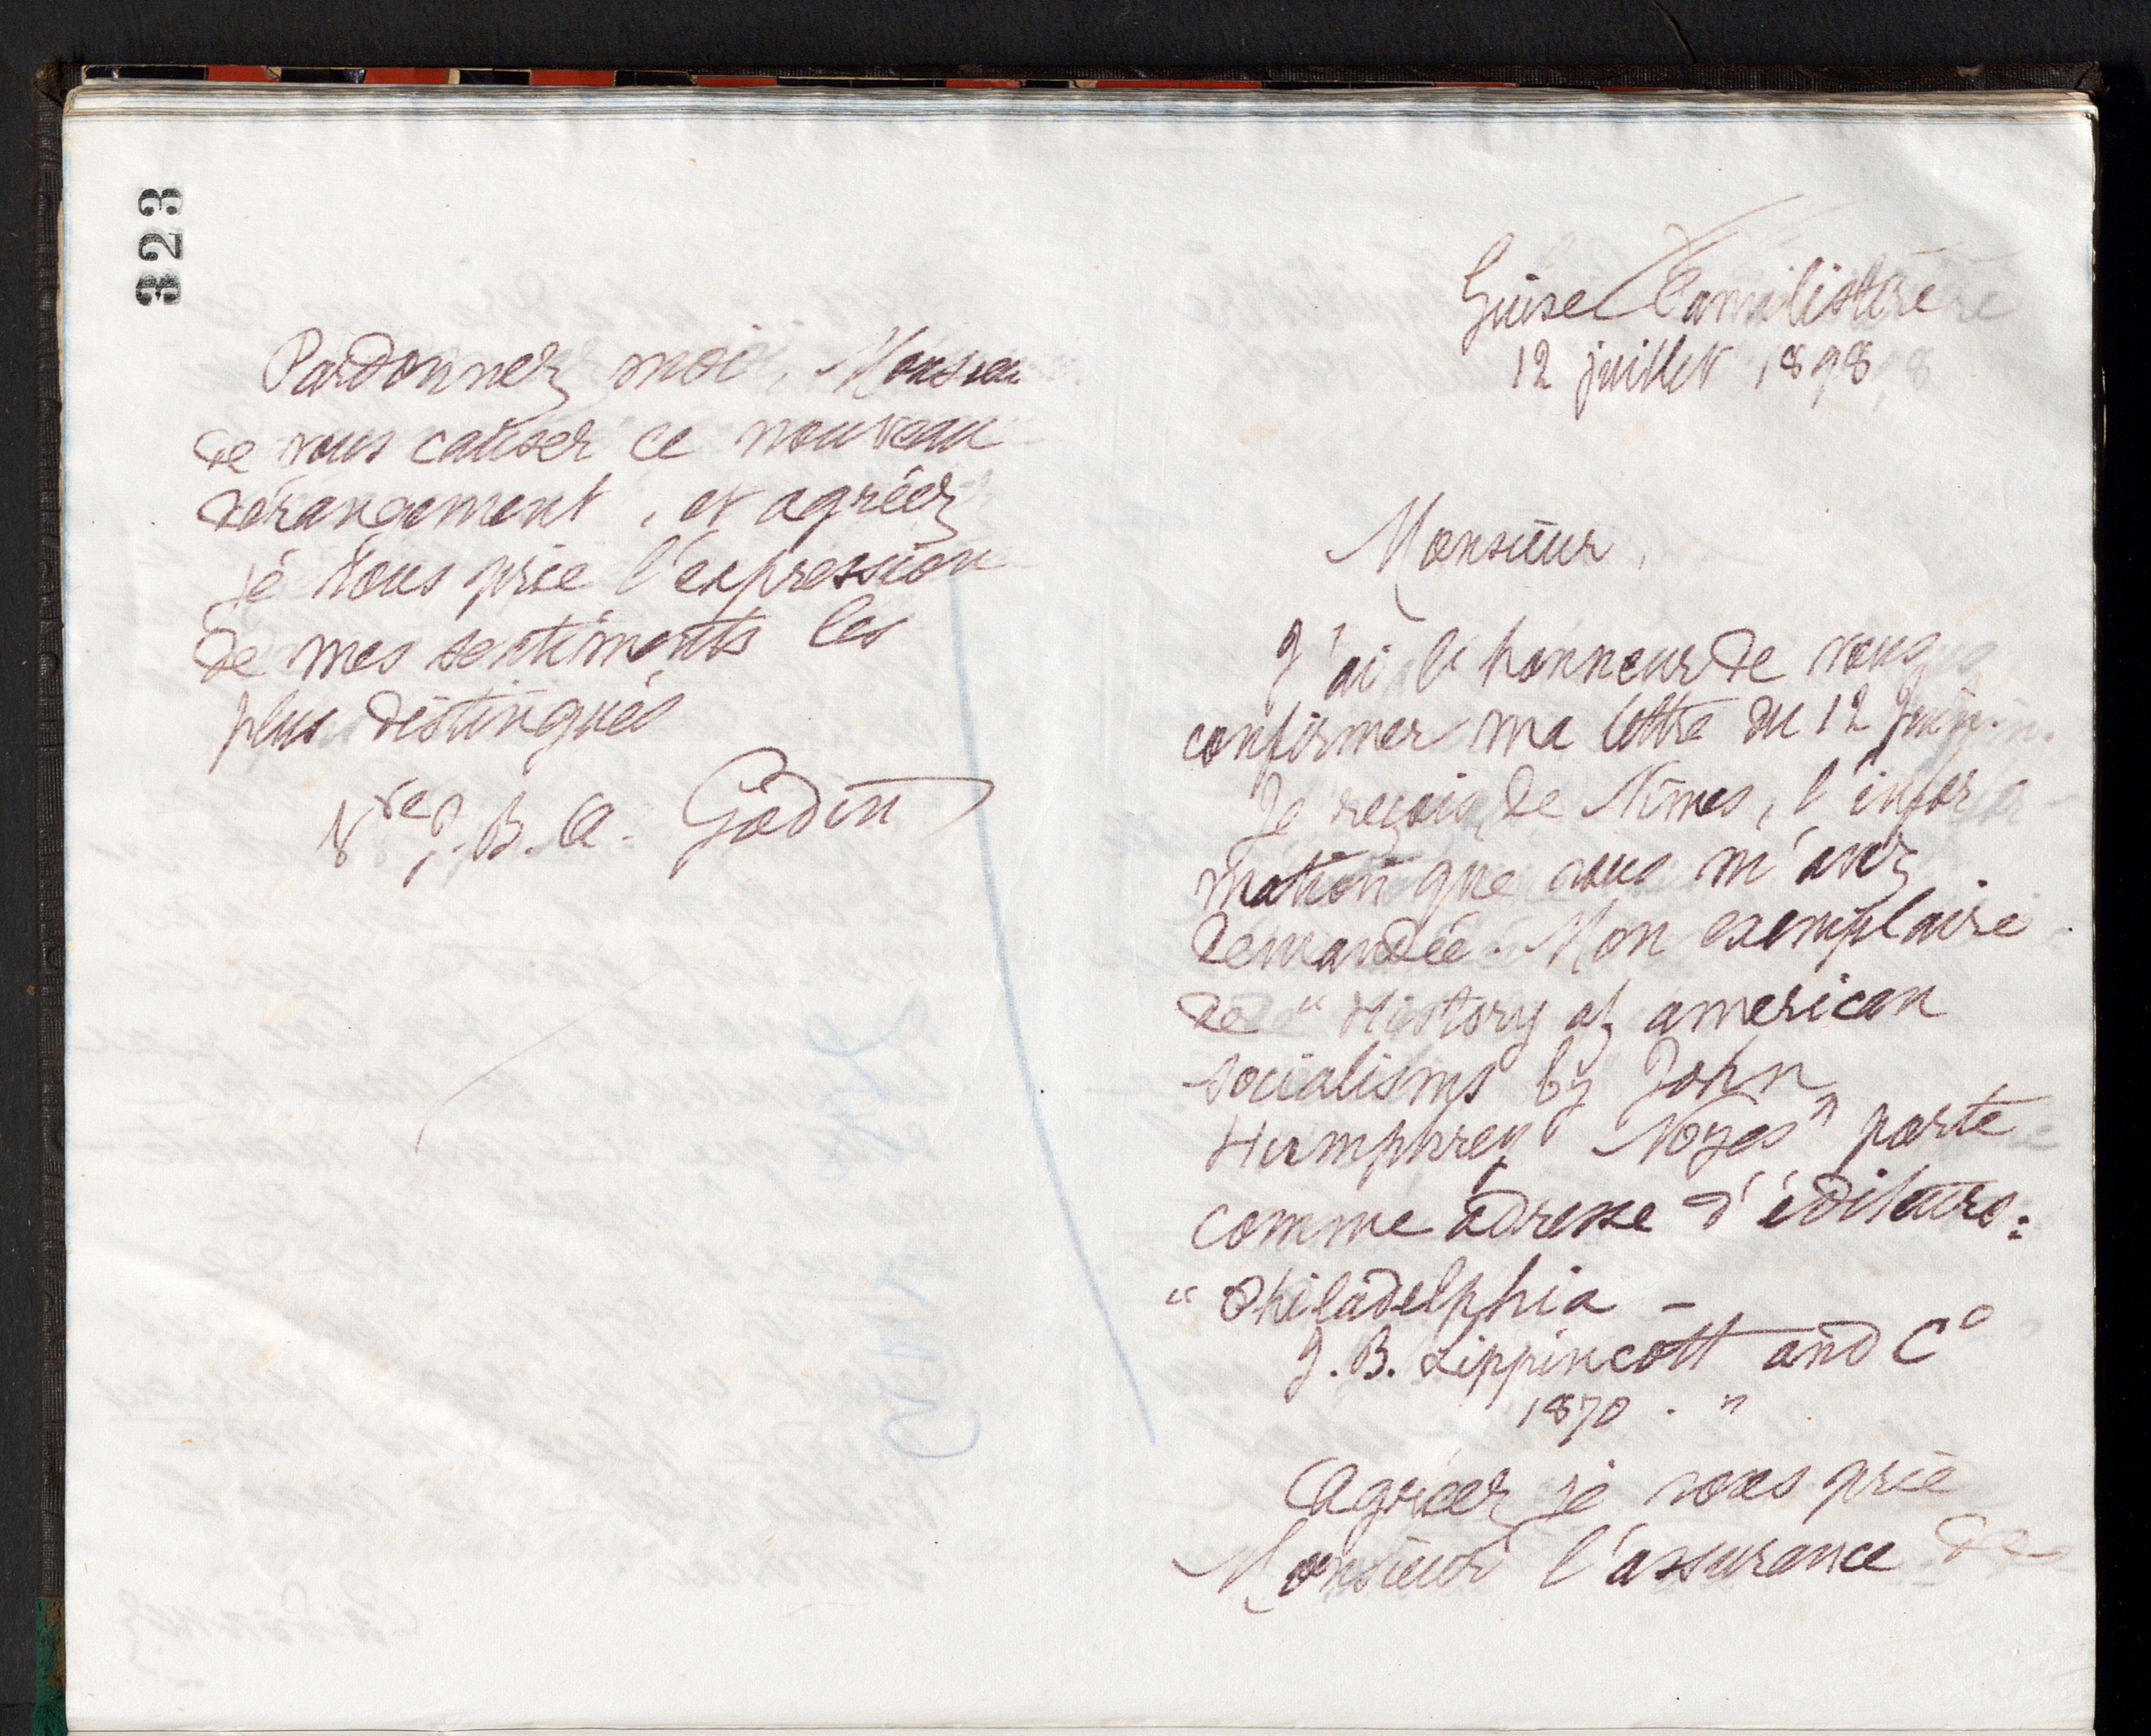 323
Pardonnez moi, Monsieur
de vous causer ce nouveau
dérangement, et agréez
je vous prie l'expression
de mes sentiments les
plus distingués
Vve J. B. A. Godin
Guise Familistère
12 juillet 1898
Monsieur,
J'ai l'honneur de vous
confirmer ma lettre du 12 Juin.
Je reçois, de Nîmes, l'infor
mation que vous m'avez
demandée. Mon exemplaire
de "History of american
socialisms by John
Humphrey Noyes" porte
comme adresse d'éditeurs:
"Philadelphia -
J. B. Lippincott and Co
1870. "
Agréez je vous prie
Monsieur l'assurance de